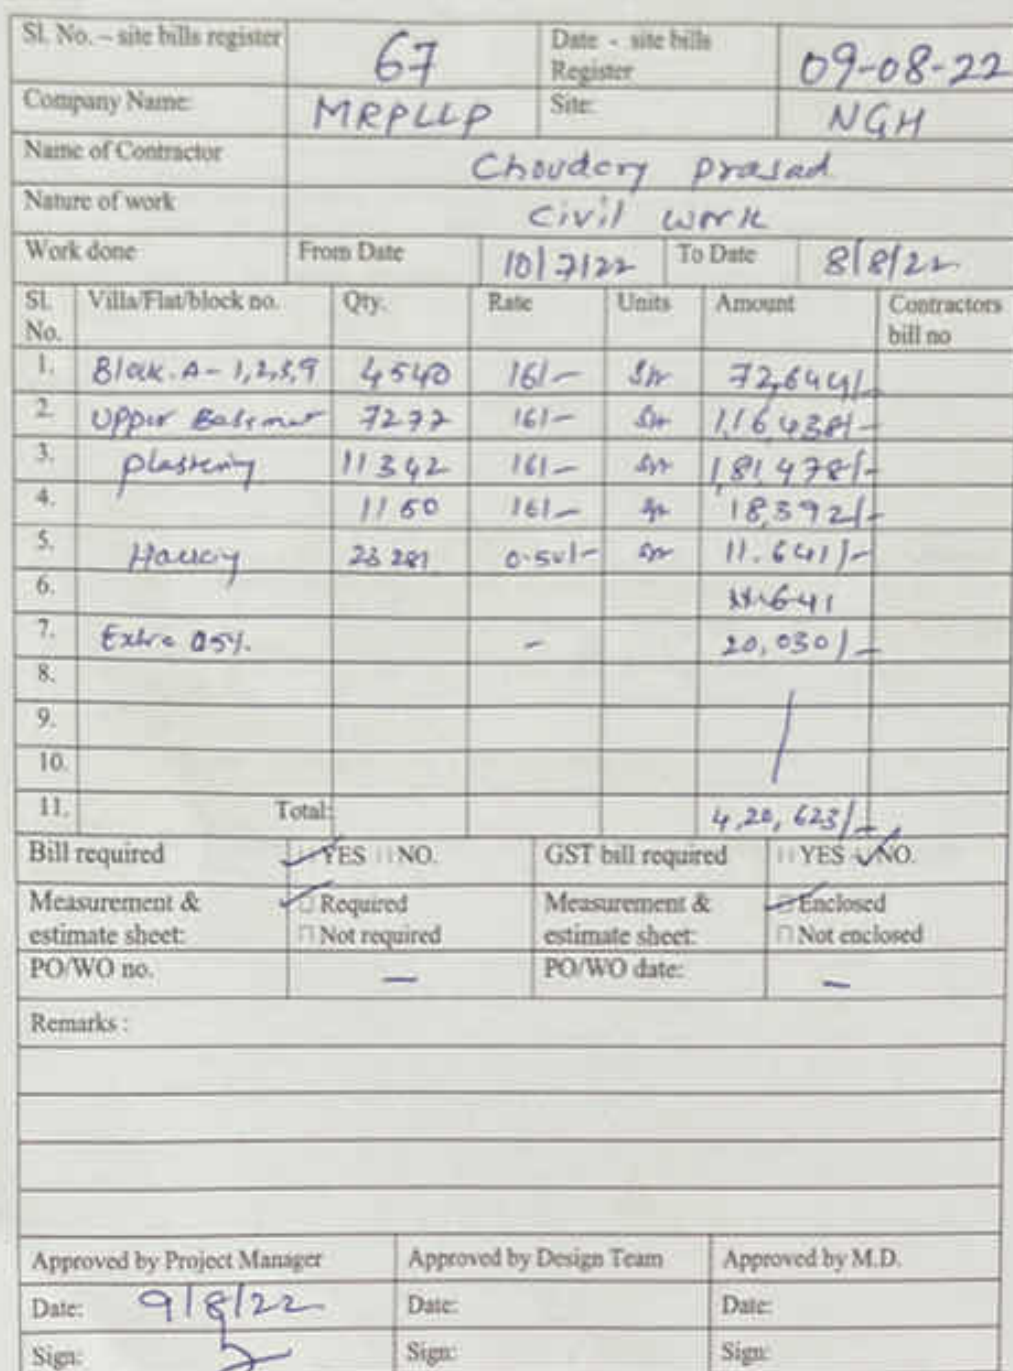 Sl. No. – site bills register 67 Date - site bills Register 09-08-22
Company Name: MRPLLP Site: NGH
Name of Contractor Choudery prasad
Nature of work Civil work
Work done From Date 10/7/22 To Date 8/8/22
Sl. No. Villa/Flat/block no. Qty. Rate Units Amount Contractors bill no
1. Block. A - 1,2,3,9 4540 16/- 72,644/-
2. Upper Basement 7277 16/- 1,16,438/-
3. plastering 11342 16/- 1,81,478/-
4. 1150 16/- 18,392/-
5. 23281 0.50/- 11.641/-
6. 11.641
7. Extra 05%. - 20,030/-
8.
9.
10.
11. Total: 4,20,623/-
Bill required YES NO. GST bill required YES NO.
Measurement & estimate sheet: Required Not required Measurement & estimate sheet: Enclosed Not enclosed
PO/WO no. — PO/WO date: —
Remarks :
Approved by Project Manager Approved by Design Team Approved by M.D.
Date: 9/8/22 Date: Date:
Sign: Sign: Sign: